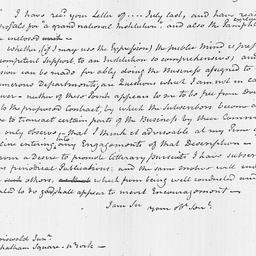 I have rec'd your Letter of .... July last, and have read
for a grand national Institution, and also the Pamphlet
inclosed
Whether, (if I may use the Expression) the public Mind is
competent Support to an Institution so comprehensive; and
can be made for ably doing the Business assigned to
numerous Departments, are Questions which I am not in
neither of those Points appears to me to be free from
to the proposed Contract, by which the Subscribers become
to transact certain parts of the Business by their
only observe, that I think it advisable at my Time of
entering into any Engagements of that Description
From a Desire to promote literary Pursuits I have
periodical Publications; and the same motive will
others, which from being well conducted and
to do good shall appear to merit Encouragement.
I am Sir
your ob^t. Serv^t.
Griswold Jun^r.
Chatham Square. N York